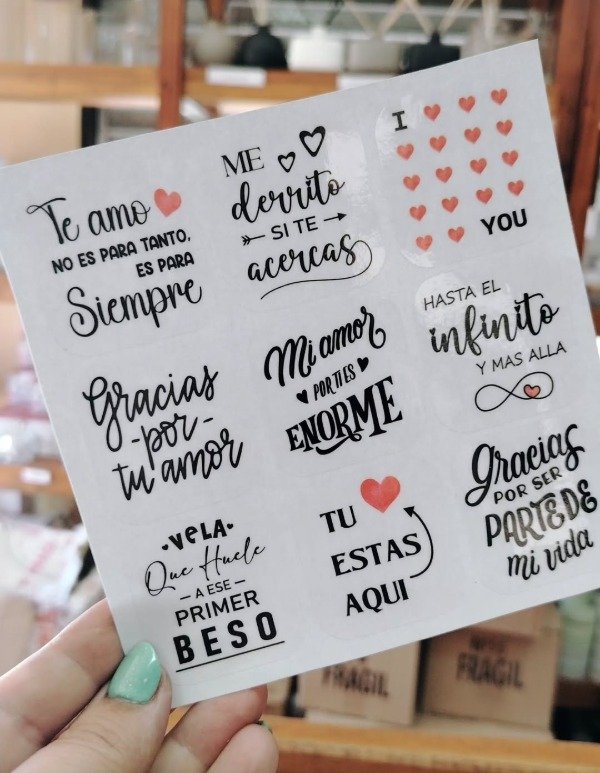 Te amo
NO ES PARA TANTO,
ES PARA
Siempre
ME
derrito
SI TE
acercas
I
YOU
Gracias
-por-
tu amor
Mi amor
POR TI ES
ENORME
HASTA EL
infinito
Y MAS ALLA
•VELA•
Que Huele
- A ESE -
PRIMER
BESO
TU
ESTAS
AQUI
Gracias
POR SER
PARTE DE
mi vida
FRAGIL
FRAGIL